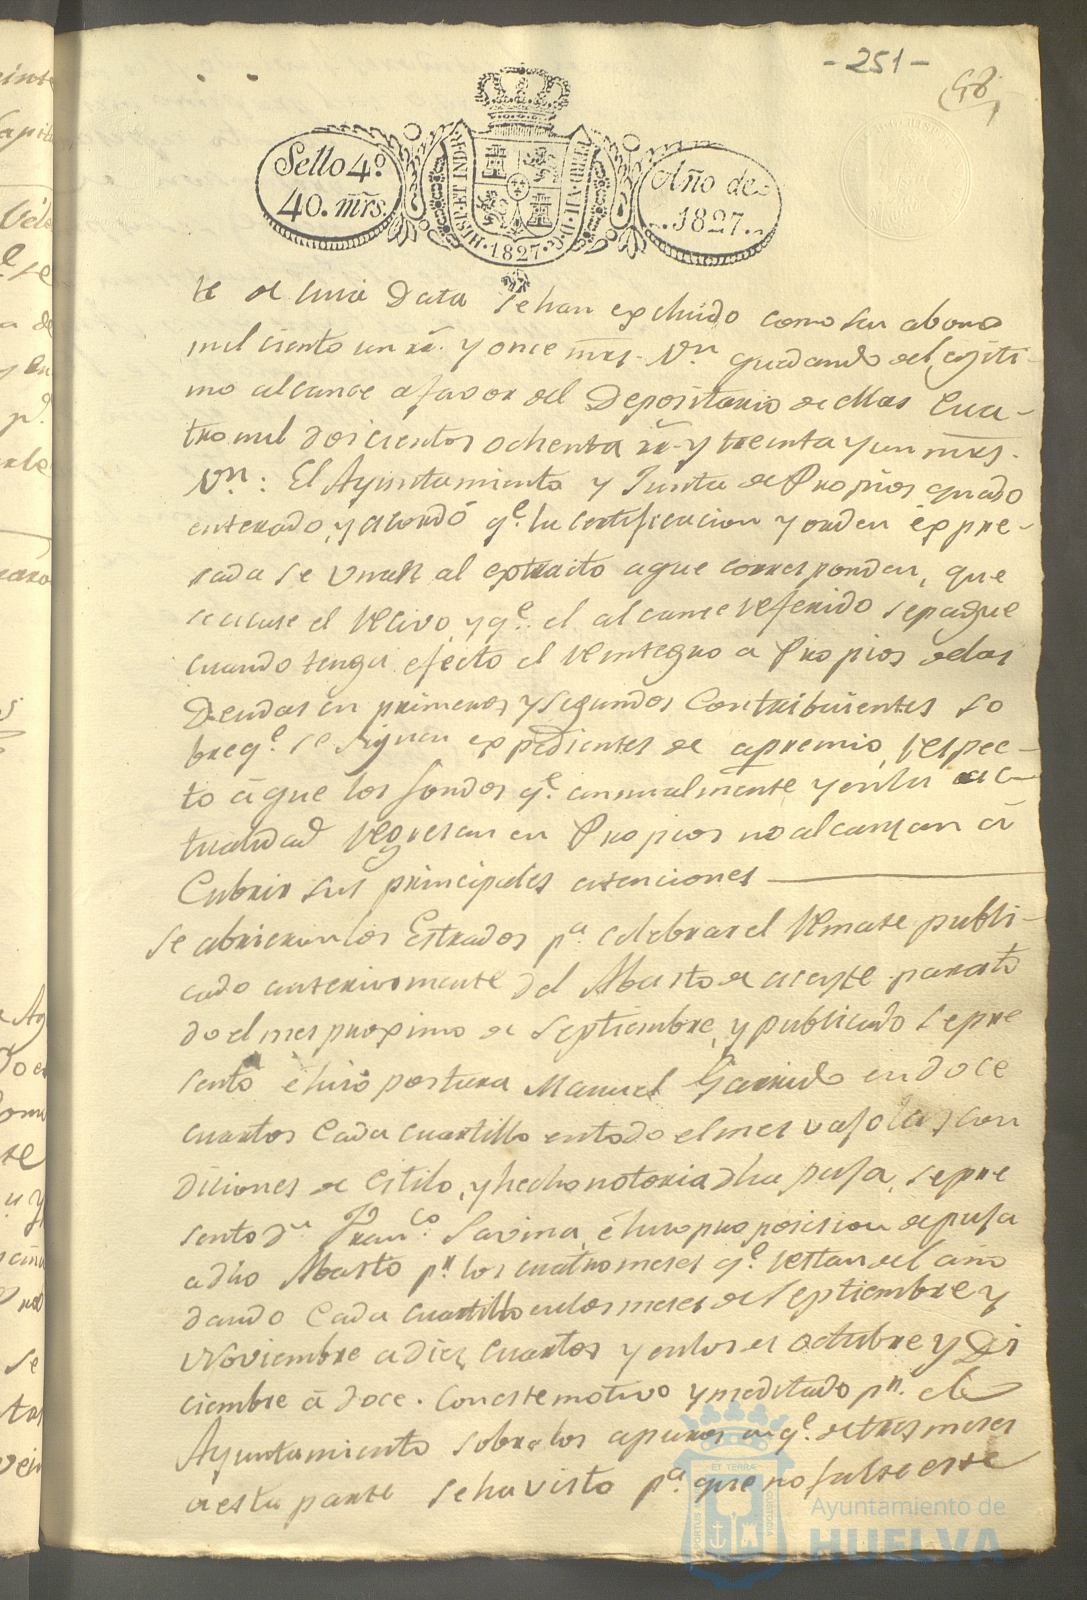 - 251 -
Sello 4º
40. mrs.
HISP. ET IND. R
FERD. VII. D. G.
1827
Año de
1827.
te de cuia Data se han excluido como su abono
mil ciento un rr. y once mrs. Vn. quedando el lejiti-
mo alcance a favor del Depositario de ellas Cua-
tro mil doscientos ochenta rr. y treinta y un mrs.
Vn.: El Ayuntamiento y Junta de Propios quedó
enterado, y acordó qe. la certificacion y orden expre-
sada se unan al extracto a que corresponden, que
se acuse el recivo, y qe. el alcance referido se pague
cuando tenga efecto el reintegro a Propios de las
Deudas en primeros y segundos Contribuientes so
bre qe. se siguen expedientes de apremio, respec-
to á que los fondos qe. annualmente y en la ac-
tualidad regresan en Propios no alcanzan á
Cubrir sus principales atenciones
Se abrieron los Estrados pa. celebrar el remate publi-
cado anteriormente del Abasto de aceyte para to
do el mes proximo de Septiembre, y publicado se pre
sentó é hizo postura Manuel Garrido en doce
cuartos Cada cuartillo en todo el mes vajo las con
diciones de estilo, y hecho notoria dha puja, se pre
sentó Dn. Franco. Savina, é hizo proposicion de puja
a dho Abasto pr. los cuatro meses qe. restan del año
dando Cada cuartillo en los meses de Septiembre y
Noviembre a diez cuartos y en los de Octubre y Di
ciembre á doce. Con este motivo y meditado pr. el
Ayuntamiento sobre los apuros en qe. de tres meses
a esta parte se ha visto pa. que no falte este
Ayuntamiento de
HUELVA